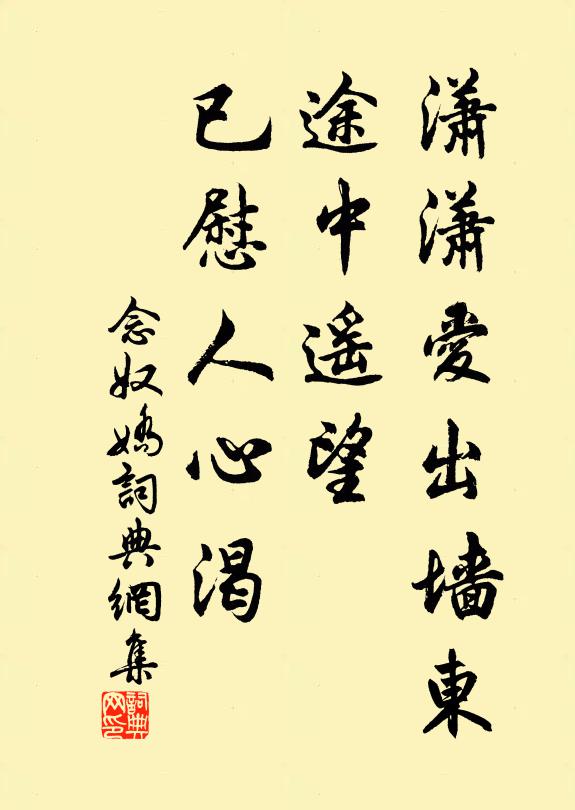 瀟瀟愛出墻東
途中遥望
已慰人心渴
念奴嬌詞典網集
詞典网印